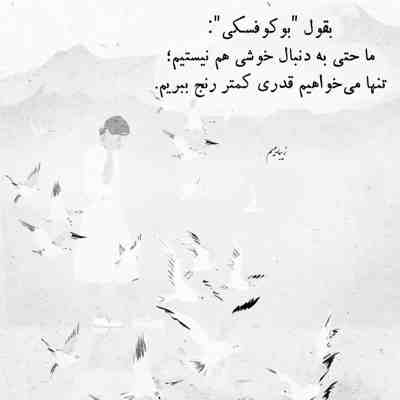 بقول "بوکوفسکی":
ما حتی به دنبال خوشی هم نیستیم؛
تنها می‌خواهیم قدری کمتر رنج ببریم.